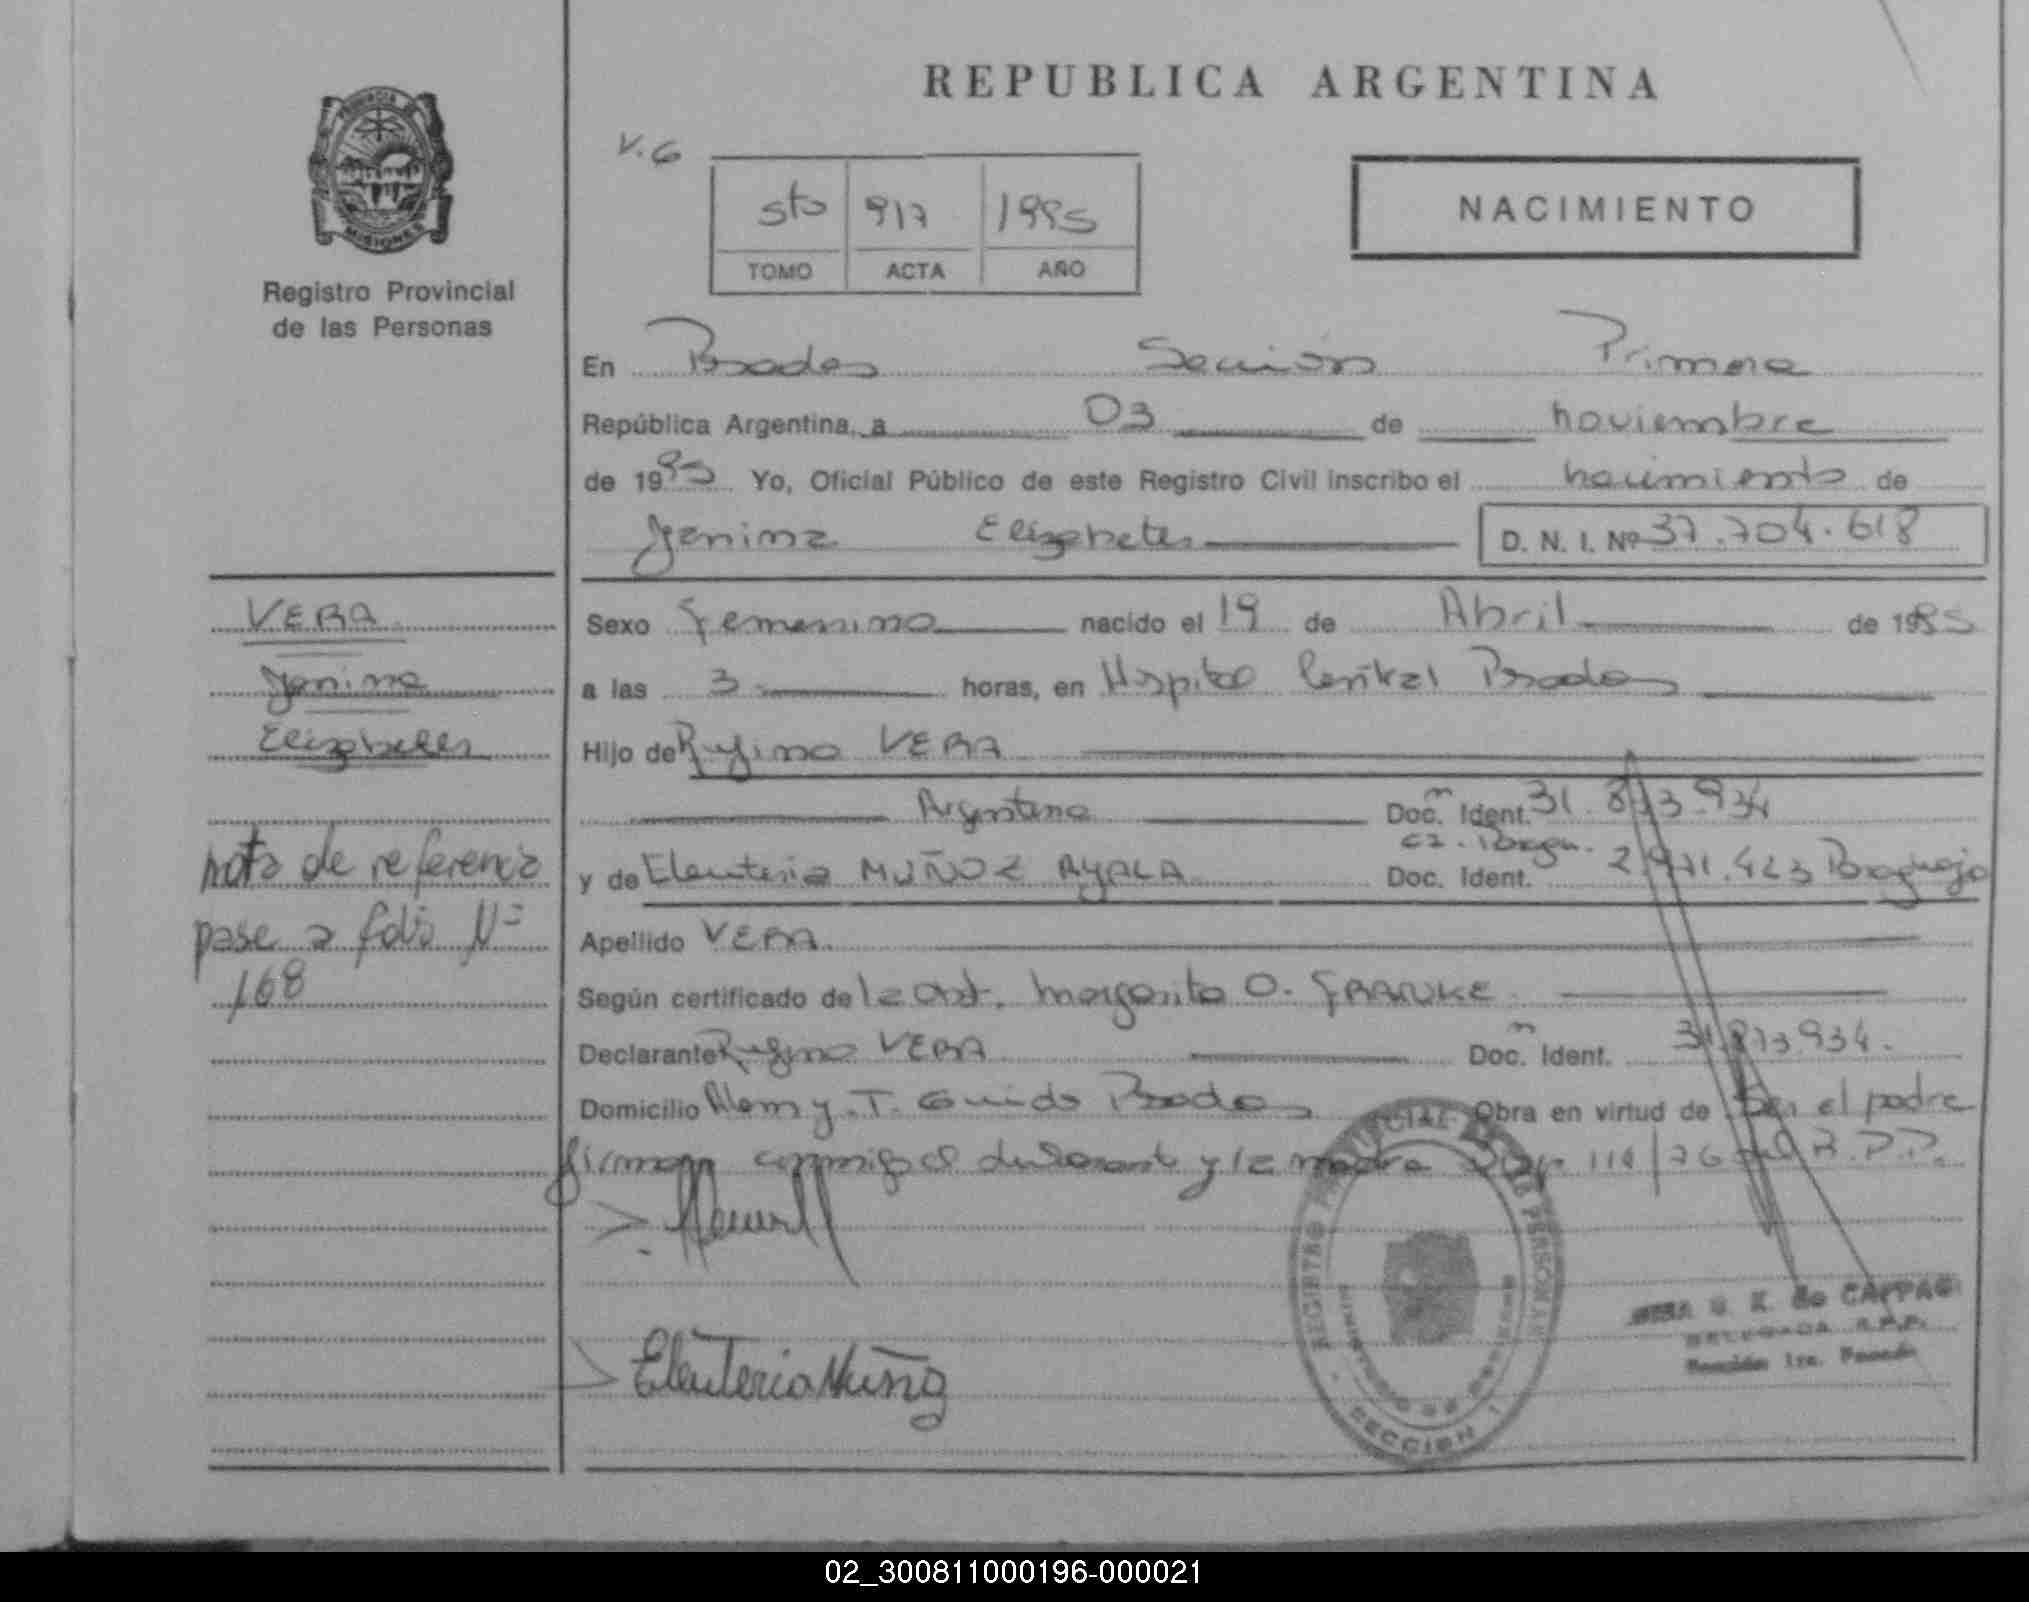 REPUBLICA ARGENTINA
PROVINCIA DE
MISIONES
Registro Provincial
de las Personas
V.6
sto 917 1995
TOMO ACTA AÑO
NACIMIENTO
En Posadas Sección Primera
República Argentina, a 03 de noviembre
de 1995 Yo, Oficial Público de este Registro Civil inscribo el nacimiento de
Janina Elizabeth D. N. I. Nº 37.704.618
VERA
Janina
Elizabeth
nota de referencia
pase a folio Nº
168
Sexo Femenino nacido el 19 de Abril de 1995
a las 3 horas, en Hospital Central Posadas
Hijo de Rufino VERA
Argentina Doc. Ident. 31.873.934
y de Eleuteria MUÑOZ AYALA Doc. Ident. 2.971.423 Paraguaya
Apellido VERA
Según certificado de la obst. Margarita O. FRANKE
Declarante Rufino VERA Doc. Ident. 31.873.934.
Domicilio Alem y T. Guido Posadas Obra en virtud de Ser el padre
firman conmigo el declarante y la madre Disp. 114/76 del R.P.P.
Eleuteria Muñoz
REGISTRO PROVINCIAL DE LAS PERSONAS
MINISTERIO DE GOBIERNO
SECCION 1
de CAPPAG
DELEGADA R.P.P.
Sección 1ra. Posadas
02_300811000196-000021